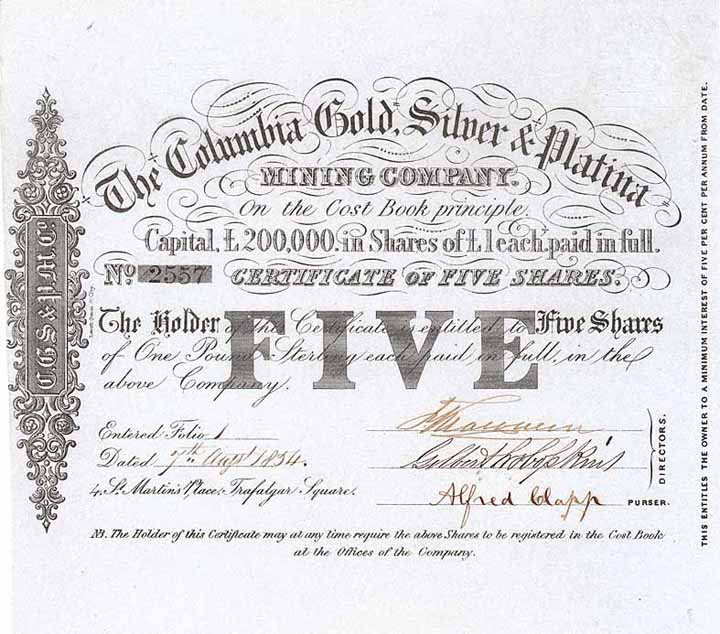 The Columbia Gold, Silver & Platina
MINING COMPANY.
On the Cost Book principle.
Capital, £200,000. in Shares of £1 each, paid in full.
No. 2557 CERTIFICATE OF FIVE SHARES.
FIVE
The Holder of the Certificate is entitled to Five Shares
of One Pound Sterling each, paid in full, in the
above Company.
Entered Folio 1
Dated 7th Augst 1854.
4, St. Martin's Place, Trafalgar Square.
DIRECTORS.
Alfred Clapp PURSER.
NB. The Holder of this Certificate may at any time require the above Shares to be registered in the Cost Book
at the Offices of the Company.
C.G.S & P.M.Co.
THIS ENTITLES THE OWNER TO A MINIMUM INTEREST OF FIVE PER CENT PER ANNUM FROM DATE.